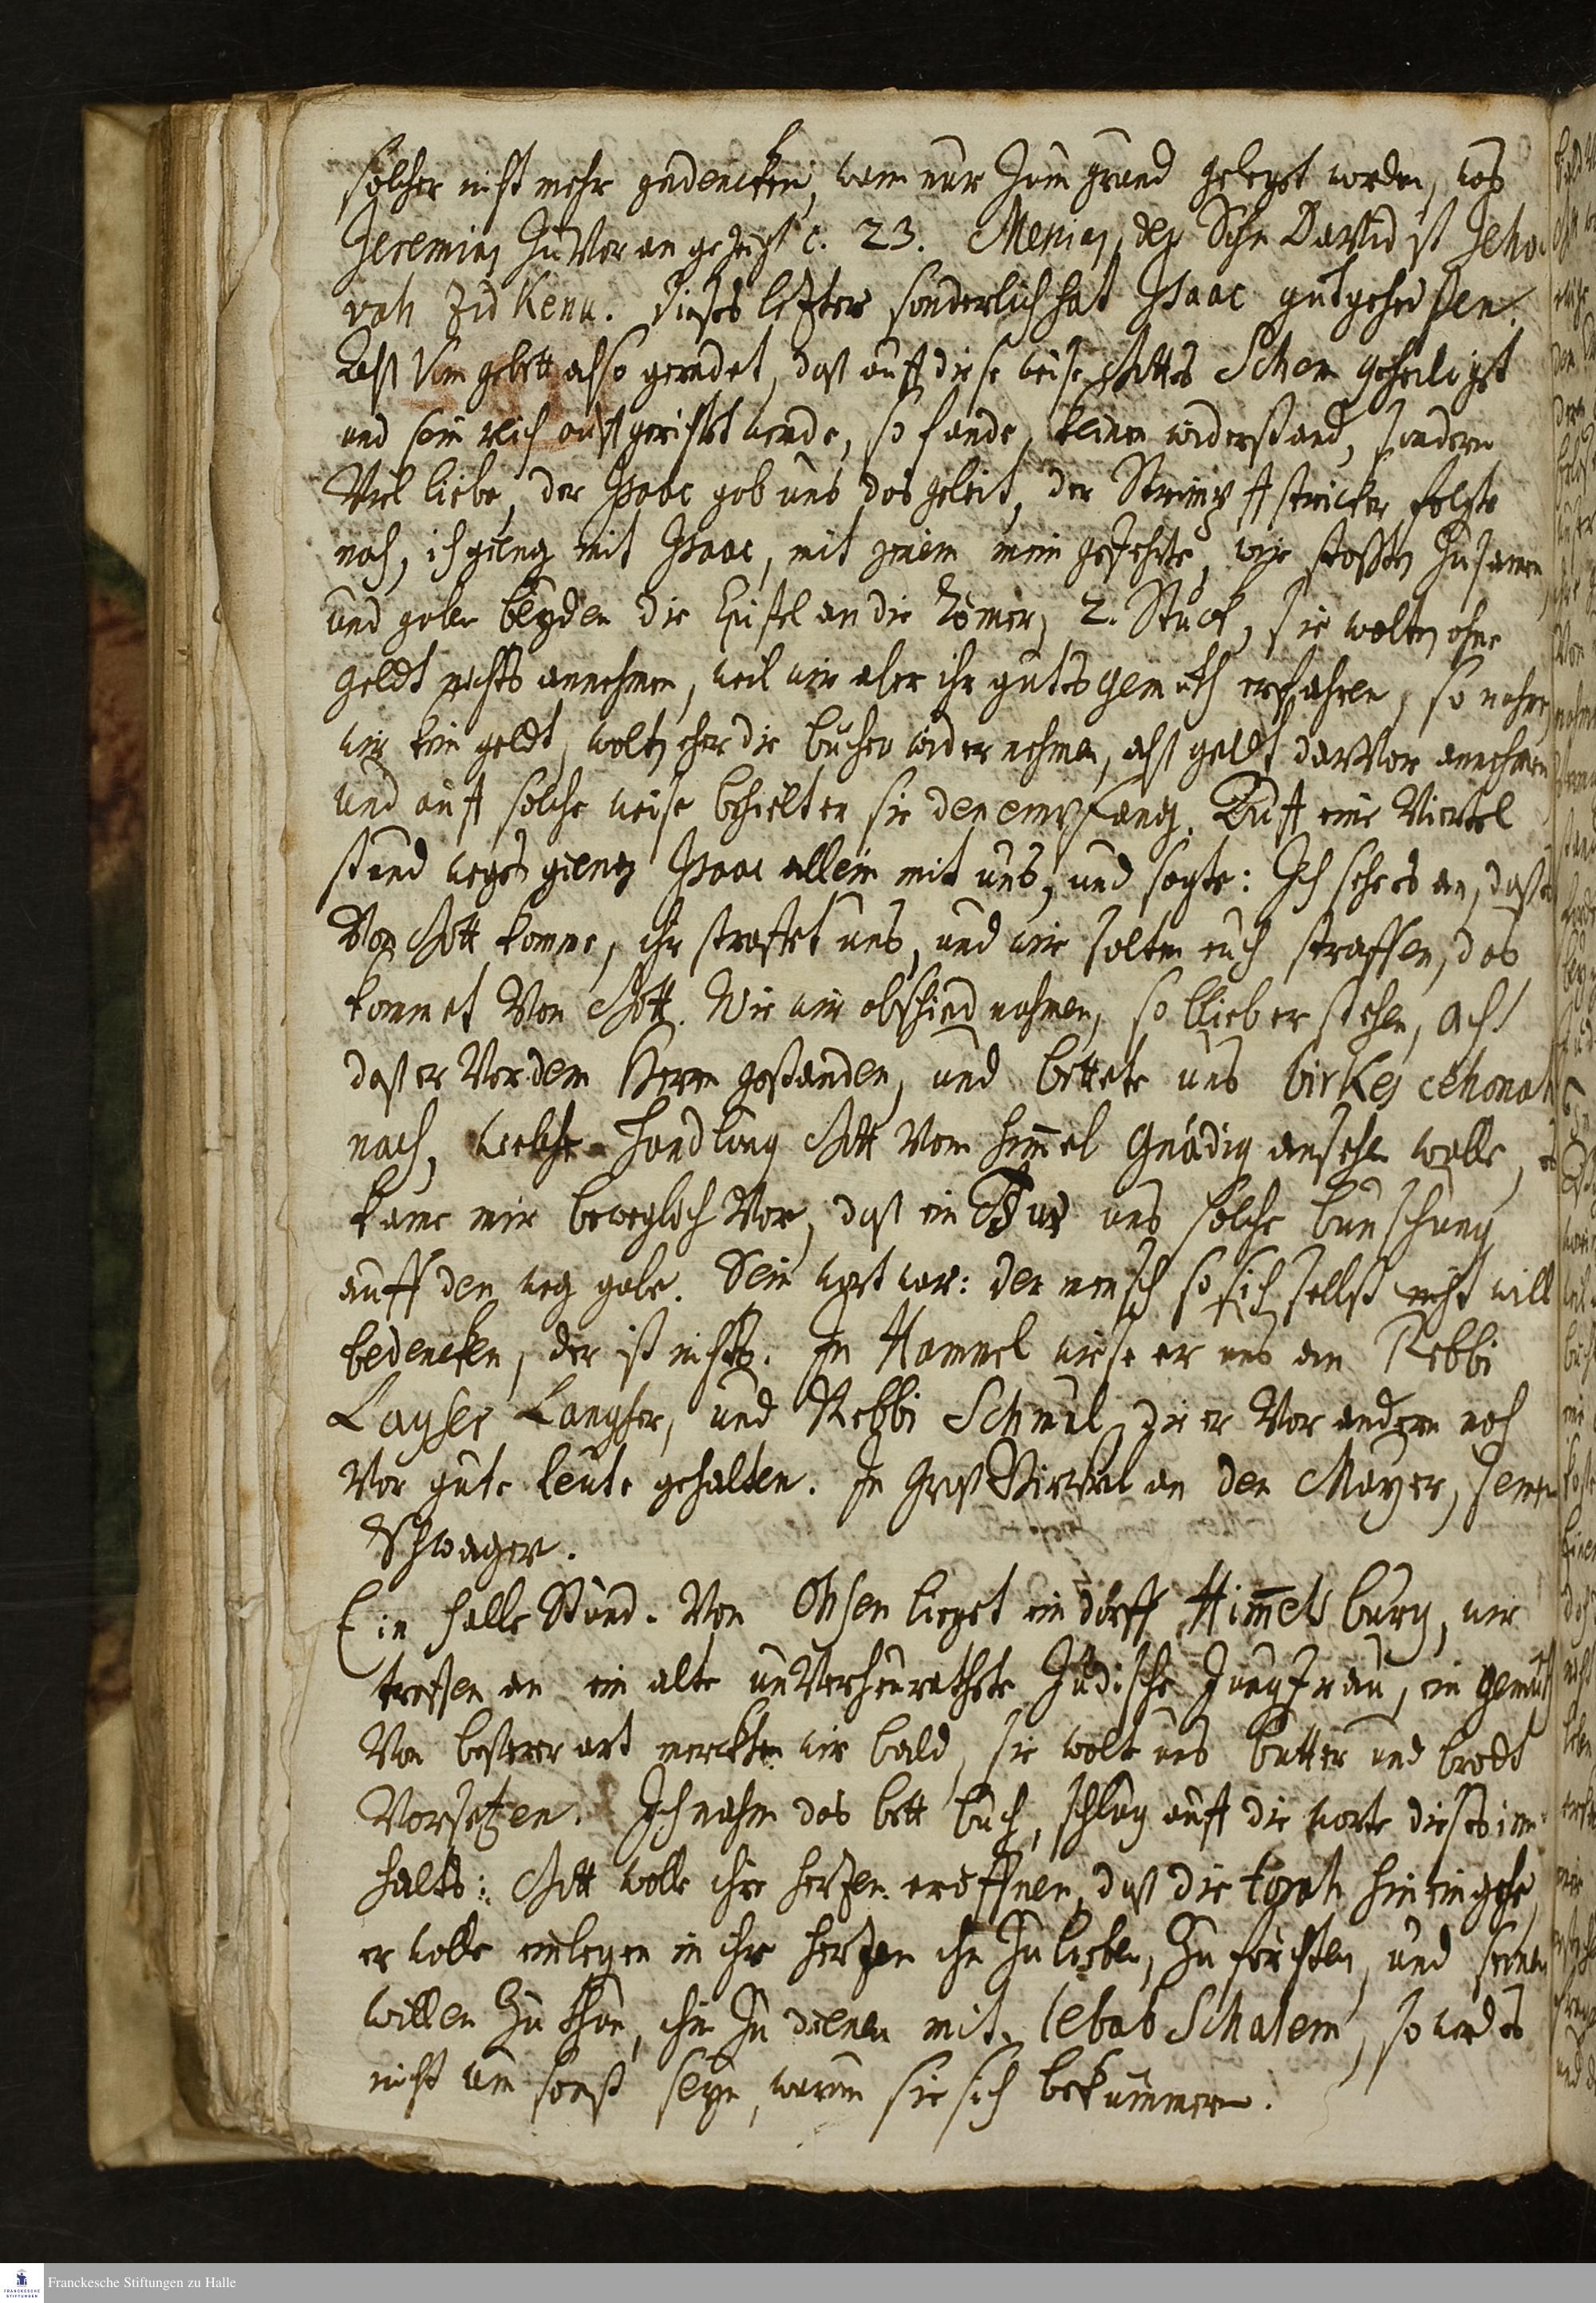 solcher nicht mehr gedencken, wenn nur zum grund gelegt worden, was
Jeremias zuvor angezeigt c. 23. Messias, der Sohn David ist Jeho-
vah Zidkenu. Dieses letztere sonderlich hat Isaac gutgeheisen.
Alß vom gebett also geredet, daß auff diese weise Gottes Schem geheiliget
und sein reich auffgerichtet werde, so fande keinen widerstand, sondern
Viel liebe, der Isaac gab uns das geleit, der Strimpffstricker folgte
nach, ich gieng mit Isaac, mit jenem mein gefehrte, wir stossten zusamen
und gaben beyden die Epistel an die Römer, 2. Stück, sie wolten ohne
geldt nichts annehmen, weil wir aber ihr gutes gemüth erfahren, so nahmen
wir kein geldt, wolten eher die bücher wider nehmen, alß geldt darvor annehmen
und auff solche weise behielten sie den empfang. Auff eine Viertel
stund wegs gieng Isaac allein mit uns, und sagte: Ich sehe es an, daß es
Von Gott komme, ihr straffet uns, und wir solten euch straffen, das
kommet Von Gott. Wie wir abschied nahmen, so blieb er stehen, ach!
daß er Vor dem Herrn gestanden, und bettete uns birkes cehonah
nach, welche Handlung Gott vom himmel Gnädig ansehen wolle, es
kame mir beweglich Vor, daß ein Jud uns solche bunschung
auff den weg gabe. Sein wort war: der mensch so sich selbst nicht will
bedencken, der ist nichts. In Hammel wiese er uns an Rebbi
Layser Langser, und Rebbi Schmul, die er Vor andern noch
Vor gute leute gehalten. In Groß Birckel an den Mayer, seinen
Schwager.
Ein halbe Stund. Von Ohsen lieget ein dorff Himmels burg, wir
treffen an ein alte unVerheurathete Jüdische Jungfrau, ein gemüth
Von besserer art merckten wir bald, sie wolt uns butter und brodt
Vorsetzen. Ich nahm das bett buch, schlug auff die worte dieses inn-
halts: Gott wolle ihre hertzen eröffnen, daß die torah hineingehe,
er wolle einlegen in ihr hertzen ihn zu lieben, zu förchten, und seinen
willen zu thun, ihm zu dienen mit lebab Schalem, so werd es
nicht um sonst seyn, warum sie sich bekümmern.
Franckesche Stiftungen zu Halle